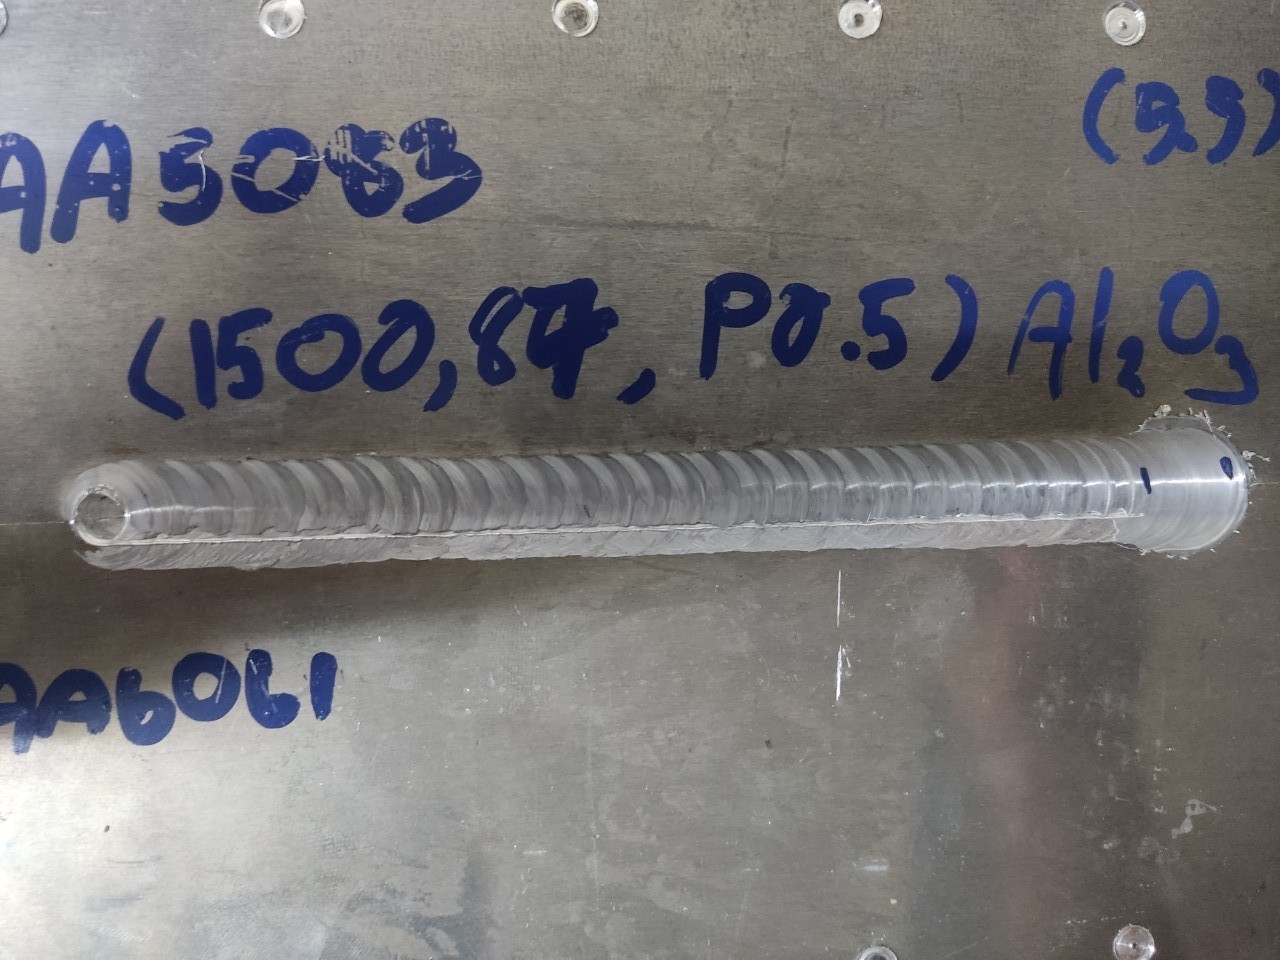 (5,5)
AA5083
(1500,87, P0.5) Al₂O₃
AA6061